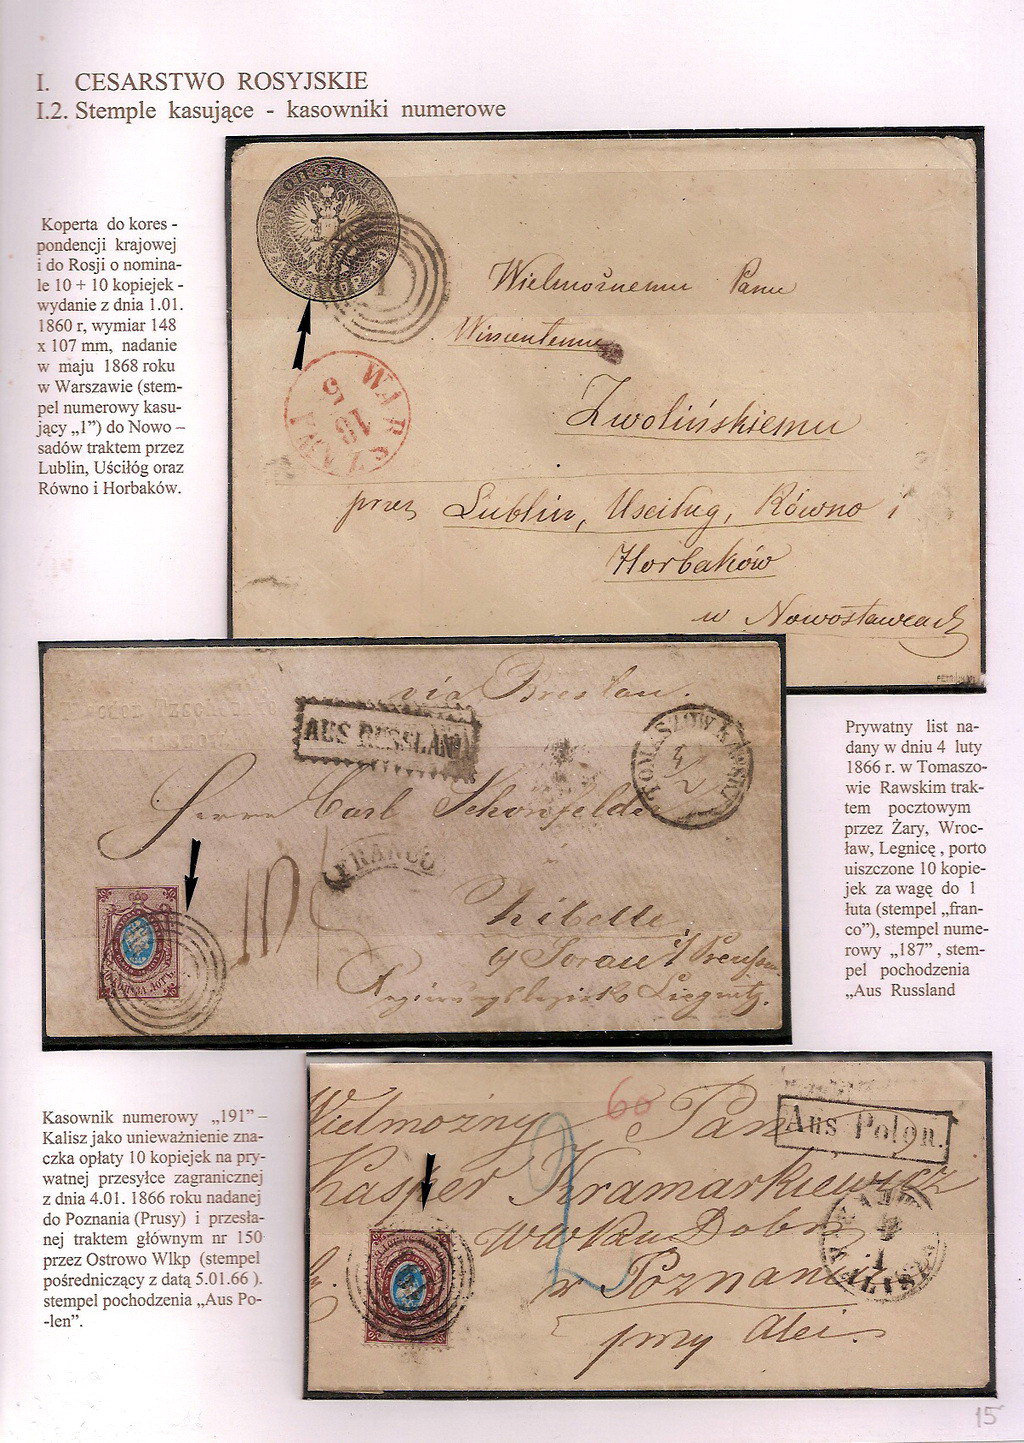 I. CESARSTWO ROSYJSKIE
I.2. Stemple kasujące - kasowniki numerowe
Koperta do kores -
pondencji krajowej
i do Rosji o nomina-
le 10 + 10 kopiejek -
wydanie z dnia 1.01.
1860 r, wymiar 148
x 107 mm, nadanie
w maju 1868 roku
w Warszawie (stem-
pel numerowy kasu-
jący „1”) do Nowo –
sadów traktem przez
Lublin, Uściłóg oraz
Równo i Horbaków.
1
WARSZAWA
15
Wielmożnemu Panu
Wincentemu
Zwolińskiemu
przez Lublin, Usciług, Równo i
Horbaków
w Nowostawcach
via Breslau.
AUS RUSSLAND
TOMASZOW RAWSKI
4/2
Herrn Carl Schönfelder
FRANCO
Zibelle
Sorau Preussen
Liegnitz.
Prywatny list na-
dany w dniu 4 luty
1866 r. w Tomaszo-
wie Rawskim trak-
tem pocztowym
przez Żary, Wroc-
ław, Legnicę , porto
uiszczone 10 kopie-
jek za wagę do 1
łuta (stempel „fran-
co”), stempel nume-
rowy „187” , stem-
pel pochodzenia
„Aus Russland
Kasownik numerowy „191” –
Kalisz jako unieważnienie zna-
czka opłaty 10 kopiejek na pry-
watnej przesyłce zagranicznej
z dnia 4.01. 1866 roku nadanej
do Poznania (Prusy) i przesła-
nej traktem głównym nr 150
przez Ostrowo Wlkp (stempel
pośredniczący z datą 5.01.66 ).
stempel pochodzenia „Aus Po-
-len”.
60
Aus Polen.
Wielmożny Pan
Kasper Kramarkiewicz
w Poznaniu
przy
15